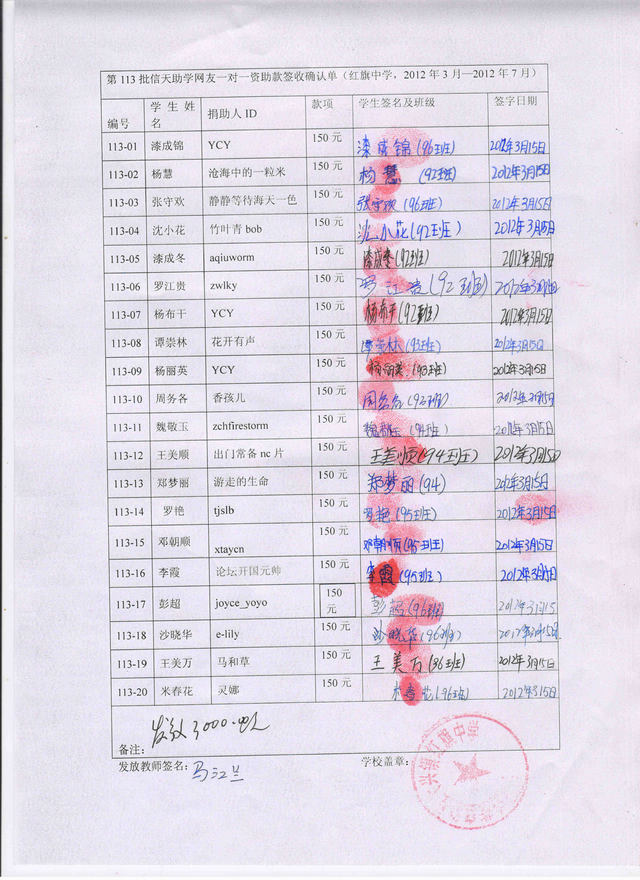 第 113 批信天助学网友一对一资助款签收确认单（红旗中学，2012 年 3 月—2012 年 7 月）
编号 学生姓名 捐助人 ID 款项 学生签名及班级 签字日期
113-01 漆成锦 YCY 150 元 漆成锦(96班) 2012年3月15日
113-02 杨慧 沧海中的一粒米 150 元 杨慧 (92班) 2012年3月15日
113-03 张守欢 静静等待海天一色 150 元 张守欢(96班) 2012年3月15日
113-04 沈小花 竹叶青 bob 150 元 沈小花(92班) 2012年3月15日
113-05 漆成冬 aqiuworm 150 元 漆成冬(92班) 2012年3月15日
113-06 罗江贵 zwlky 150 元 罗江贵(92班) 2012年3月15日
113-07 杨布干 YCY 150 元 杨布干(92班) 2012年3月15日
113-08 谭崇林 花开有声 150 元 谭崇林(93班) 2012年3月15日
113-09 杨丽英 YCY 150 元 杨丽英(93班) 2012年3月15日
113-10 周务各 香孩儿 150 元 周务各(92班) 2012年3月15日
113-11 魏敬玉 zchfirestorm 150 元 魏敬玉(94班) 2012年3月15日
113-12 王美顺 出门常备 nc 片 150 元 王美顺(94班) 2012年3月15日
113-13 郑梦丽 游走的生命 150 元 郑梦丽(94) 2012年3月15日
113-14 罗艳 tjslb 150 元 罗艳(95班) 2012年3月15日
113-15 邓朝顺 xtaycn 150 元 邓朝顺(95班) 2012年3月15日
113-16 李霞 论坛开国元帅 150 元 李霞(95班) 2012年3月15日
113-17 彭超 joyce_yoyo 150 元 彭超(96班) 2012年3月15
113-18 沙晓华 e-lily 150 元 沙晓华(96班) 2012年3月15日
113-19 王美万 马和草 150 元 王美万(86班) 2012年3月15日
113-20 米春花 灵娜 150 元 米春花(96班) 2012年3月15日
备注：
发放教师签名： 马江兰 学校盖章：
红旗中学